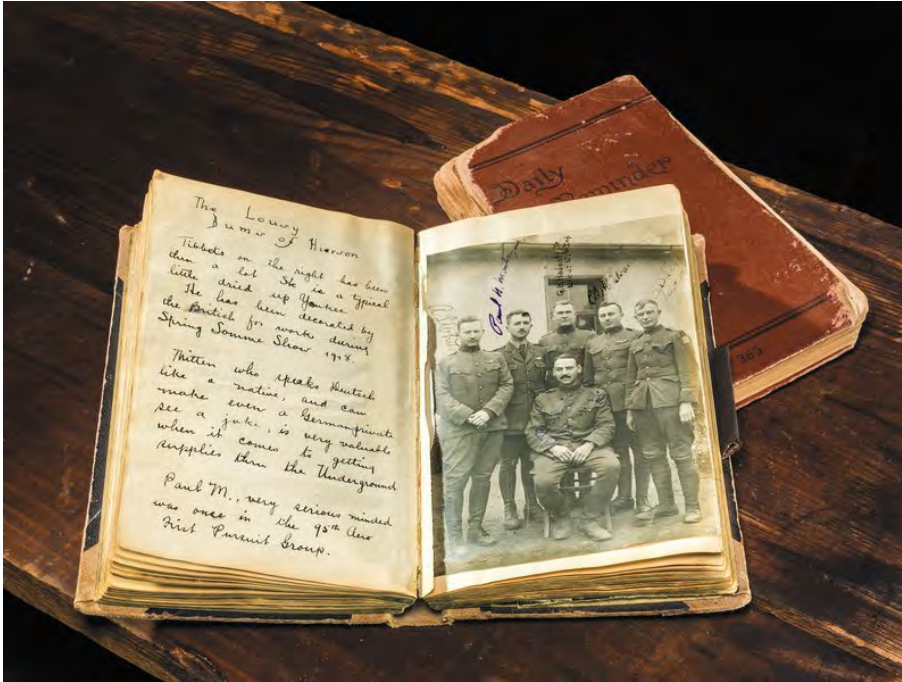 The Lousy
Bums of Hierson
Tibbets on the right has been
then a lot She is a typical
little dried up Yankee
He has been decorated by
the British for work during
Spring Somme Show 1918.
Thitten who speaks Deutsch
like a native, and can
make even a German private
see a joke, is very valuable
when it comes to getting
supplies thru the Underground
Paul M., very serious minded
was once in the 95th Aero
First Pursuit Group.
Paul
Daily
Reminder
365